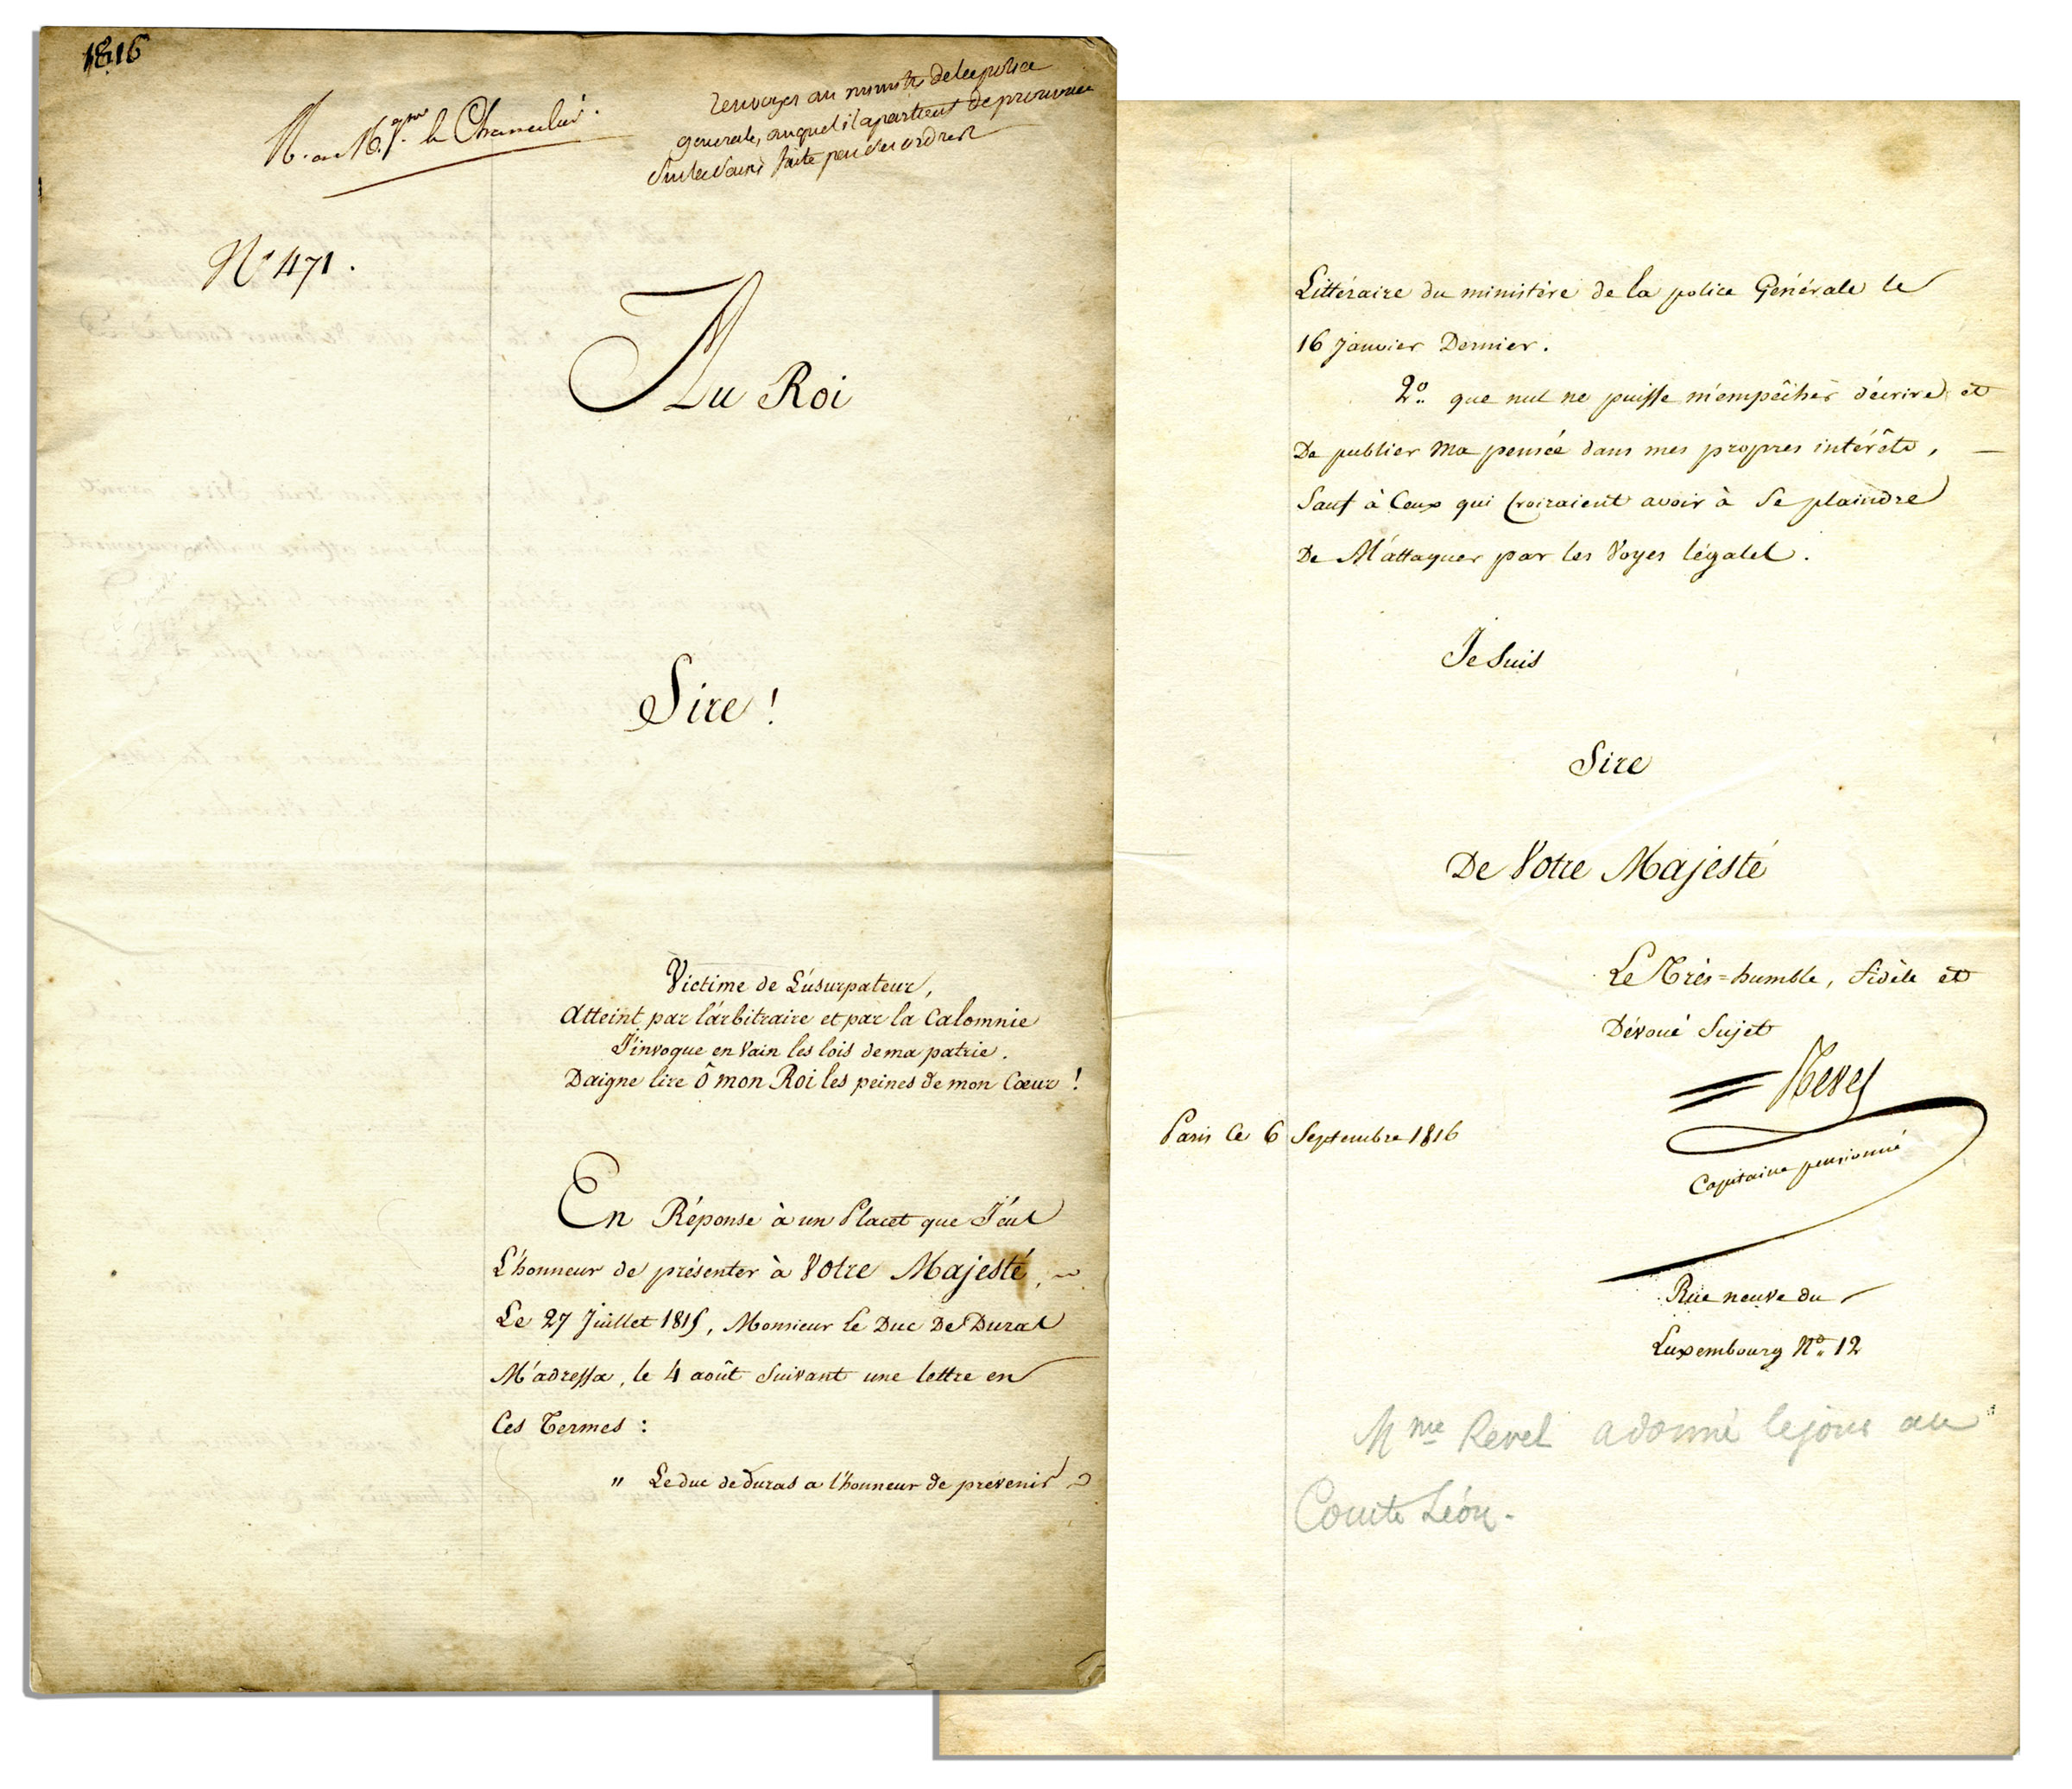 1816
R. a M.gr le Chancelier.
renvoyer au ministre de la police
generale, auquel il apartient de prononcer
sur la saisie faite par ses ordres
No 471.
Au Roi
Sire !
Victime de L'usurpateur,
Atteint par l'arbitraire et par la Calomnie
J'invoque en Vain les lois de ma patrie.
Daigne lire Ô mon Roi les peines de mon Cœur !
En Réponse à un Placet que J'eus
L'honneur de présenter à Votre Majesté,
Le 27 Juillet 1815, Monsieur Le Duc De Duras
M'adressa, le 4 août Suivant une lettre en
Ces Termes :
" Le duc de duras a l'honneur de prévenir
Littéraire du ministère de la police Générale le
16 Janvier Dernier.
2o que nul ne puisse m'empêcher d'écrire et
De publier Ma pensée dans mes propres intérêts, —
Sauf à Ceux qui Croiraient avoir à Se plaindre
De M'attaquer par les Voyes légales.
Je Suis
Sire
De Votre Majesté
Le Très=humble, fidèle et
Dévoué Sujet
Revel
Capitaine pensionné
Paris Ce 6 Septembre 1816
Rue neuve du
Luxembourg No 12
Mme Revel a donné le jour au
Comte Léon.